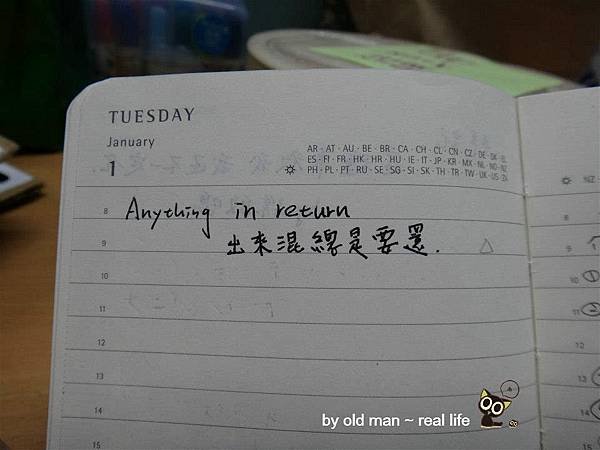 TUESDAY
January
1
AR · AT · AU · BE · BR · CA · CH · CL · CN · CZ · DE · DK · EL
ES · FI · FR · HK · HR · HU · IE · IT · JP · KR · MX · NL · NO · NZ
PH · PL · PT · RU · SE · SG · SI · SK · TH · TR · TW · UK · US · ZA
NZ
8 Anything in return
9 出來混總是要還.
10
11
12
13
14
15
8
9
10
11
12
13
14
15
by old man ~ real life